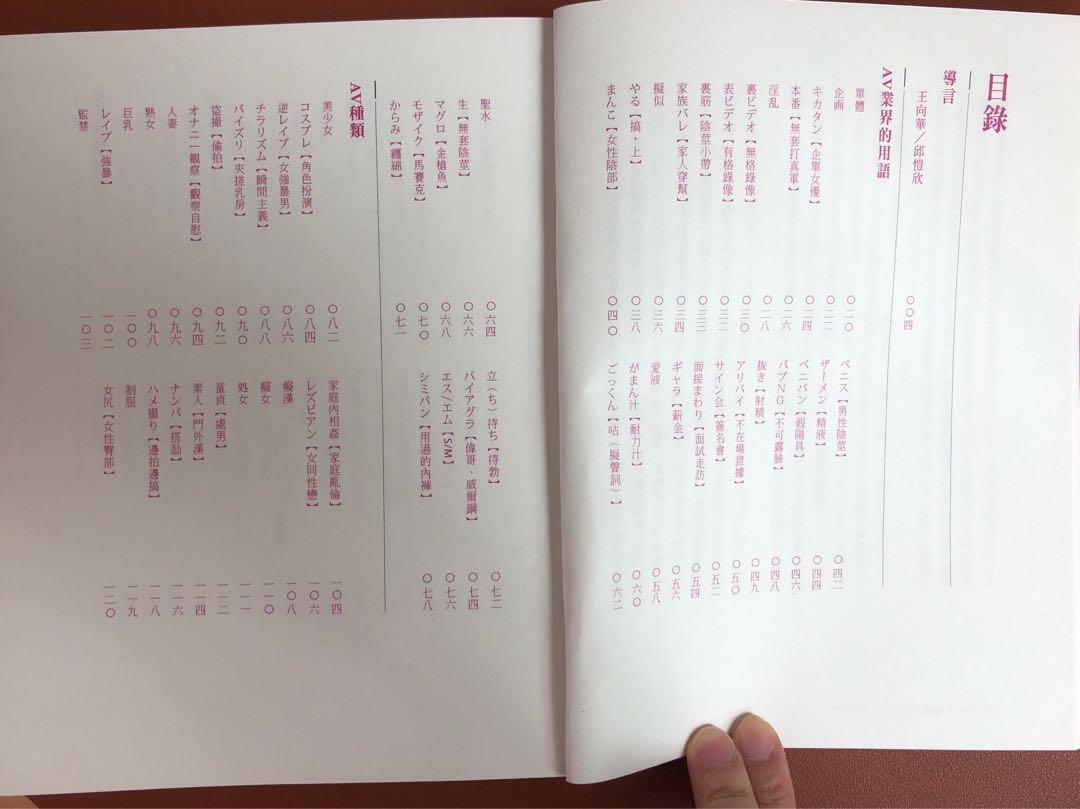 目錄
導言
王向華／邱愷欣 〇〇四
AV業界的用語
單體 〇二〇
企画 〇二二
キカタン【企單女優】 〇二四
本番【無套打真軍】 〇二六
淫乱 〇二八
裏ビデオ【無格錄像】 〇三〇
表ビデオ【有格錄像】 〇三二
裏筋【陰莖小帶】 〇三三
家族バレ【家人穿幫】 〇三四
擬似 〇三六
やる【搞，上】 〇三八
まんこ【女性陰部】 〇四〇
ペニス【男性陰莖】 〇四二
ザーメン【精液】 〇四四
ペニバン【假陽具】 〇四六
パブNG【不可露臉】 〇四八
抜き【射精】 〇四九
アリバイ【不在場證據】 〇五〇
サイン会【簽名會】 〇五二
面接まわり【面試走訪】 〇五四
ギャラ【薪金】 〇五六
愛液 〇五八
がまん汁【耐力汁】 〇六〇
ごっくん【咕（擬聲詞）】 〇六二
聖水 〇六四
生【無套陰莖】 〇六六
マグロ【金槍魚】 〇六八
モザイク【馬賽克】 〇七〇
からみ【纏綿】 〇七一
立（ち）待ち【待勃】 〇七二
バイアグラ【偉哥、威爾鋼】 〇七四
エス/エム【S/M】 〇七六
シミパン【用過的內褲】 〇七八
AV種類
美少女 〇八二
コスプレ【角色扮演】 〇八四
逆レイプ【女強暴男】 〇八六
チラリズム【瞬間主義】 〇八八
パイズリ【夾搓乳房】 〇九〇
盜撮【偷拍】 〇九二
オナニー観察【觀察自慰】 〇九四
人妻 〇九六
熟女 〇九八
巨乳 一〇〇
レイプ【強暴】 一〇二
監禁 一〇三
家庭內相姦【家庭亂倫】 一〇四
レズビアン【女同性戀】 一〇六
癡漢 一〇八
癡女 一一〇
処女 一一一
童貞【處男】 一一二
素人【門外漢】 一一四
ナンパ【搭訕】 一一六
ハメ撮り【邊拍邊搞】 一一八
制服 一一九
女尻【女性臀部】 一二〇